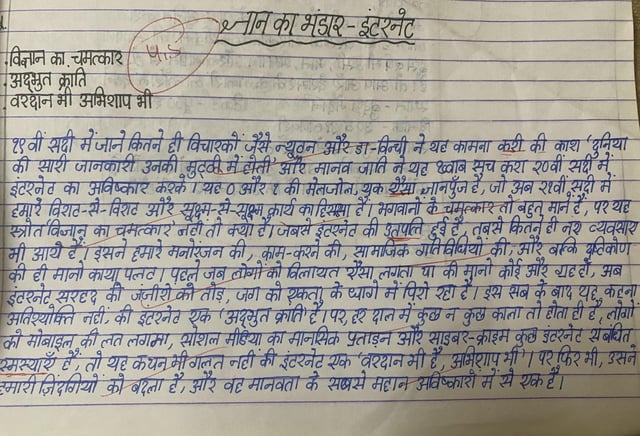 ज्ञान का भंडार - इंटरनेट
4.5
. विज्ञान का चमत्कार
. अद्भुत क्रांति
. वरदान भी अभिशाप भी
१९ वीं सदी में जाने कितने ही विचारकों जैसे न्यूटन और डा-विन्ची ने यह कामना करी की काश 'दुनिया
की सारी जानकारी उनकी मुट्ठी में होती' और मानव जाति ने यह ख्वाब सच करा २०वीं सदी में
इंटरनेट का आविष्कार करके। यह 0 और १ की मेलजोल, एक ऐसा जानपुँज है, जो अब २१वीं सदी में
हमारे विराट-से-विराट और सूक्ष्म-से-सूक्ष्म कार्य का हिस्सा है। भगवानों के चमत्कार तो बहुत माने हैं, पर यह
स्त्रोत विज्ञान का चमत्कार नहीं तो क्या है। जबसे इंटरनेट की उत्पत्ति हुई है, तबसे कितने ही नए व्यवसाय
भी आये हैं। इसने हमारे मनोरंजन की, काम-करने की, सामाजिक गतिविधियों की, और बल्कि दृष्टिकोण
की ही मानो काया पलट। पहले जब लोगों को विलायत ऐसा लगता था की मानो कोई और ग्रह हो, अब
इंटरनेट सरहद की जंजीरों को तोड़, जग को एकता के धागे में पिरो रहा है। इस सब के बाद यह कहना
अतिश्योक्ति नहीं, की इंटरनेट एक 'अद्भुत क्रांति' है। पर, हर दाल में कुछ न कुछ काला तो होता ही है, लोगों
को मोबाइल की लत लगना, सोशल मीडिया का मानसिक प्रताड़न और साइबर-क्राइम कुछ इंटरनेट संबंधित
समस्याएँ हैं, तो यह कथन भी गलत नहीं की इंटरनेट एक 'वरदान भी है, अभिशाप भी'। पर फिर भी, उसने
हमारी ज़िंदगियों को बदला है, और वह मानवता के सबसे महान अविष्कारों में से एक है।